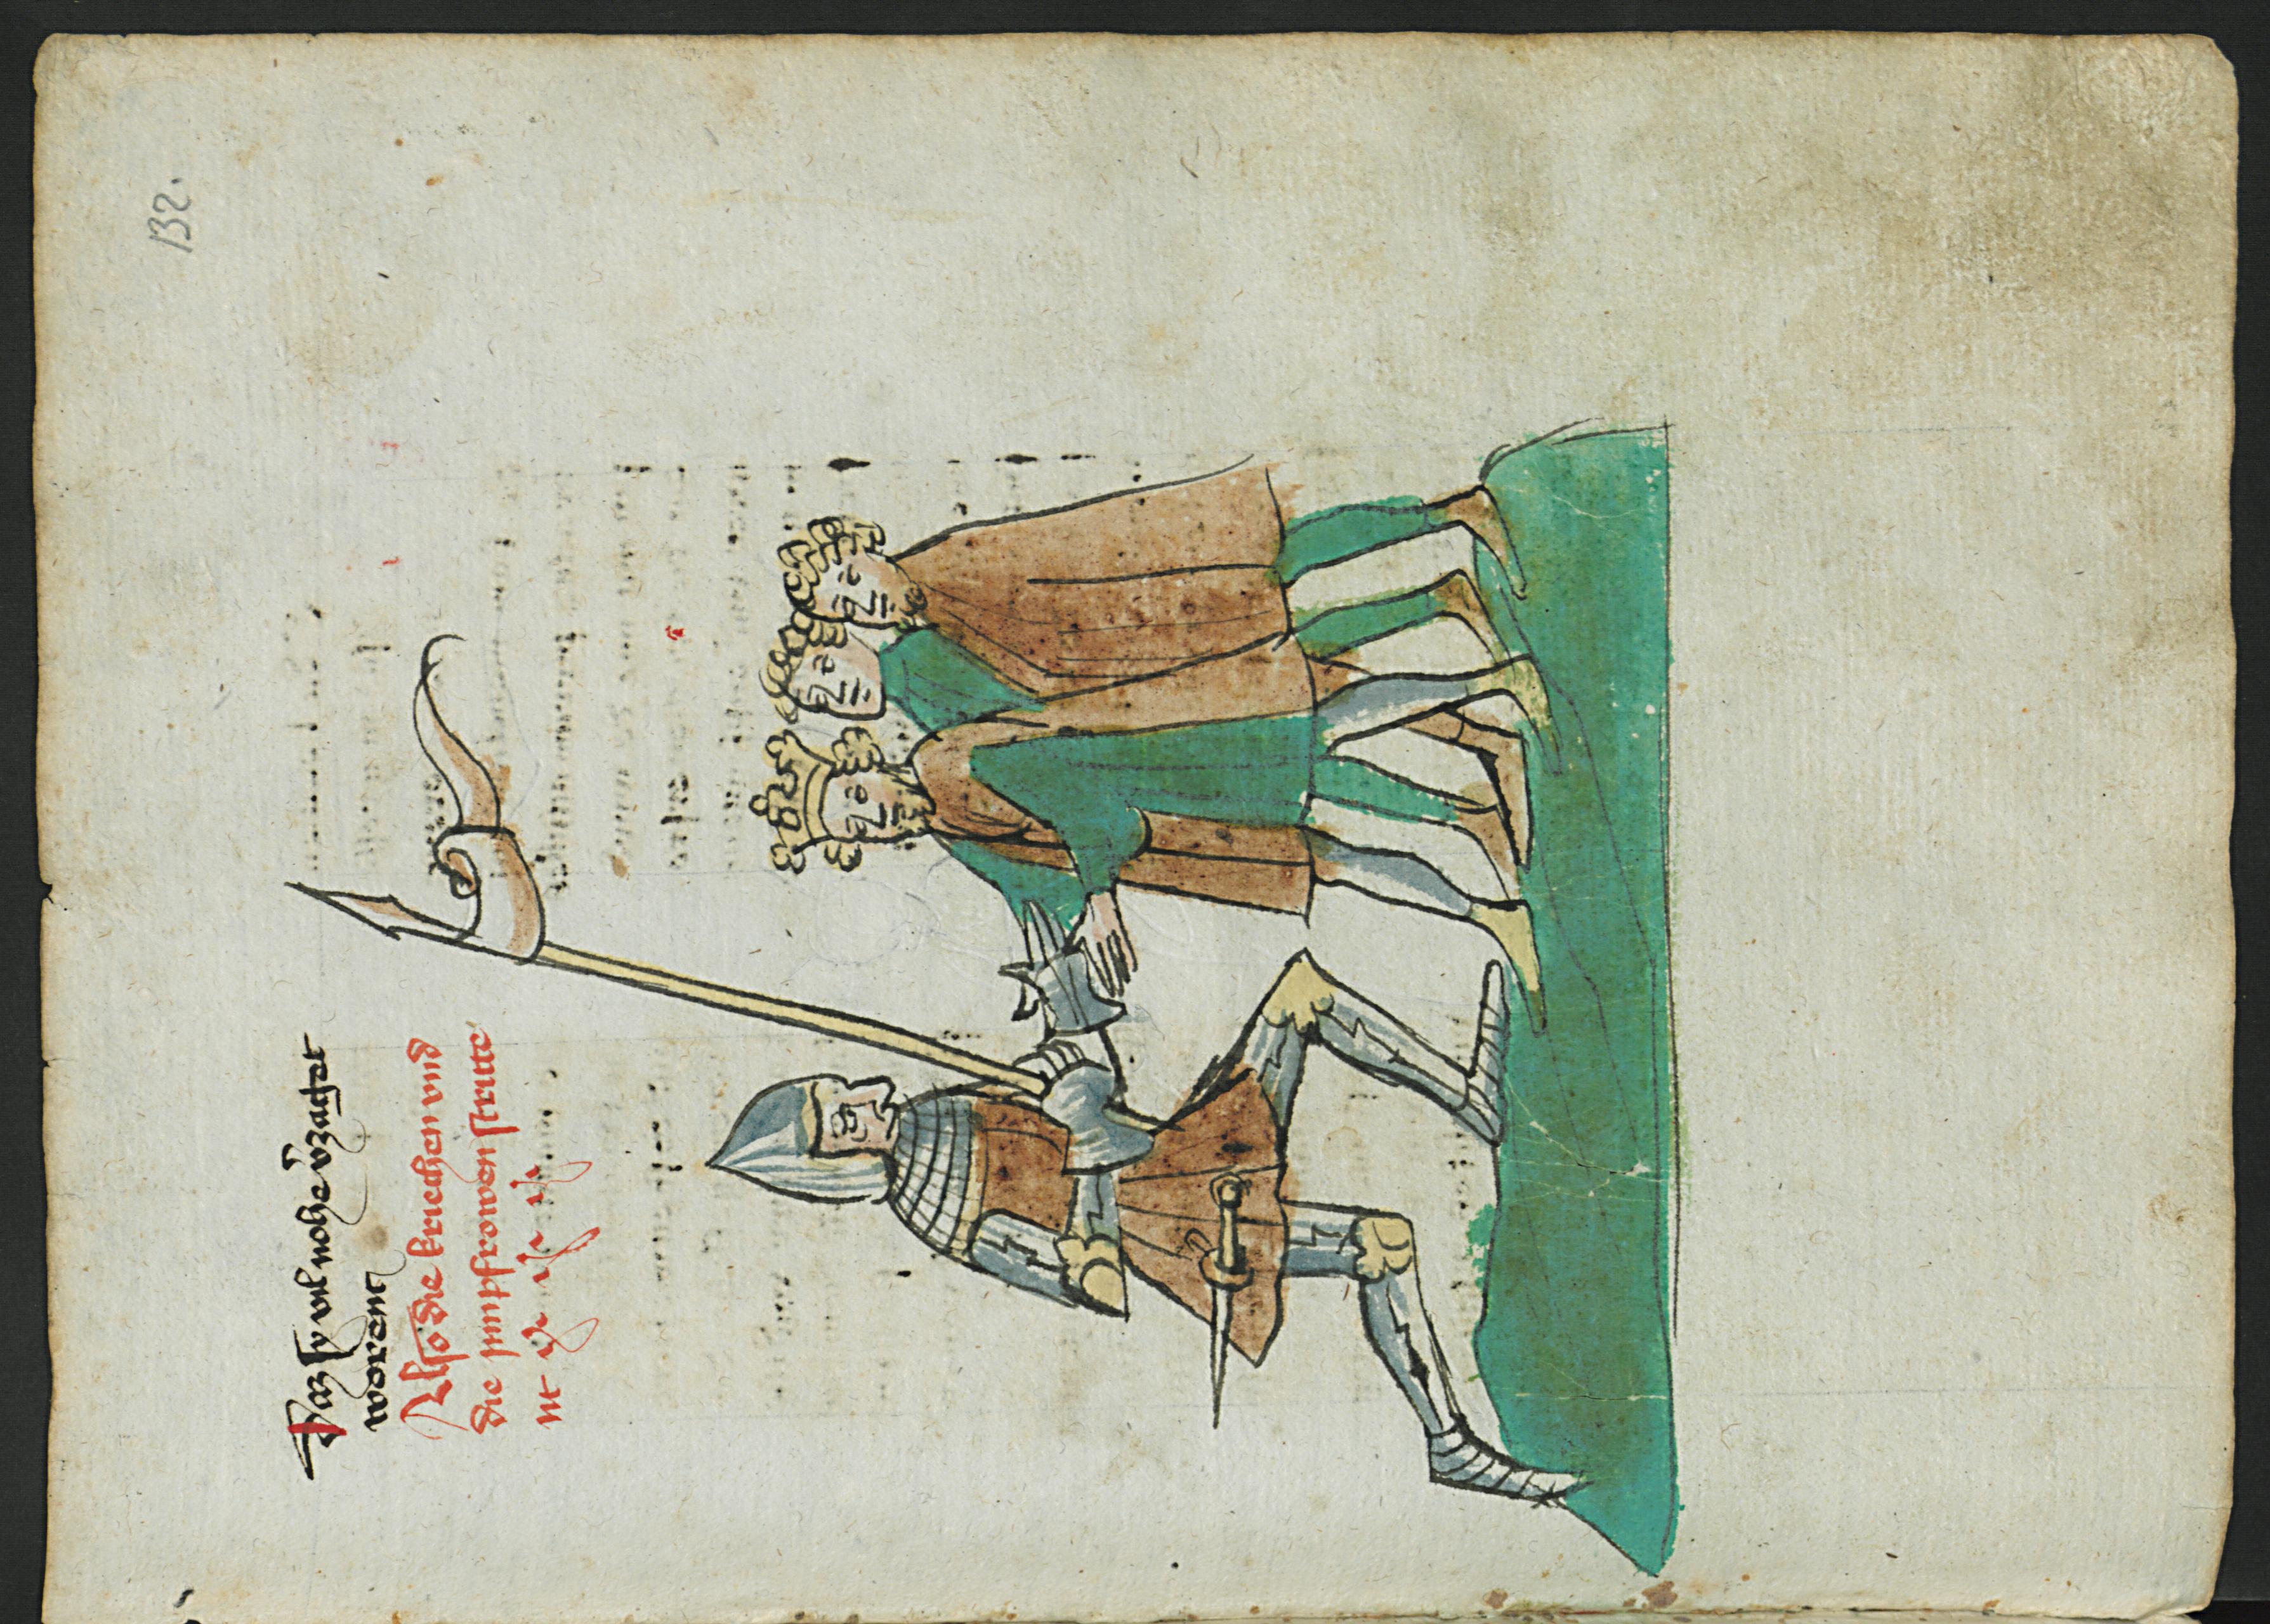 132.
Daz sy vil nohe v̾zachet
worent
Also die kriechen vnd
die junpfrowen stritte
nt